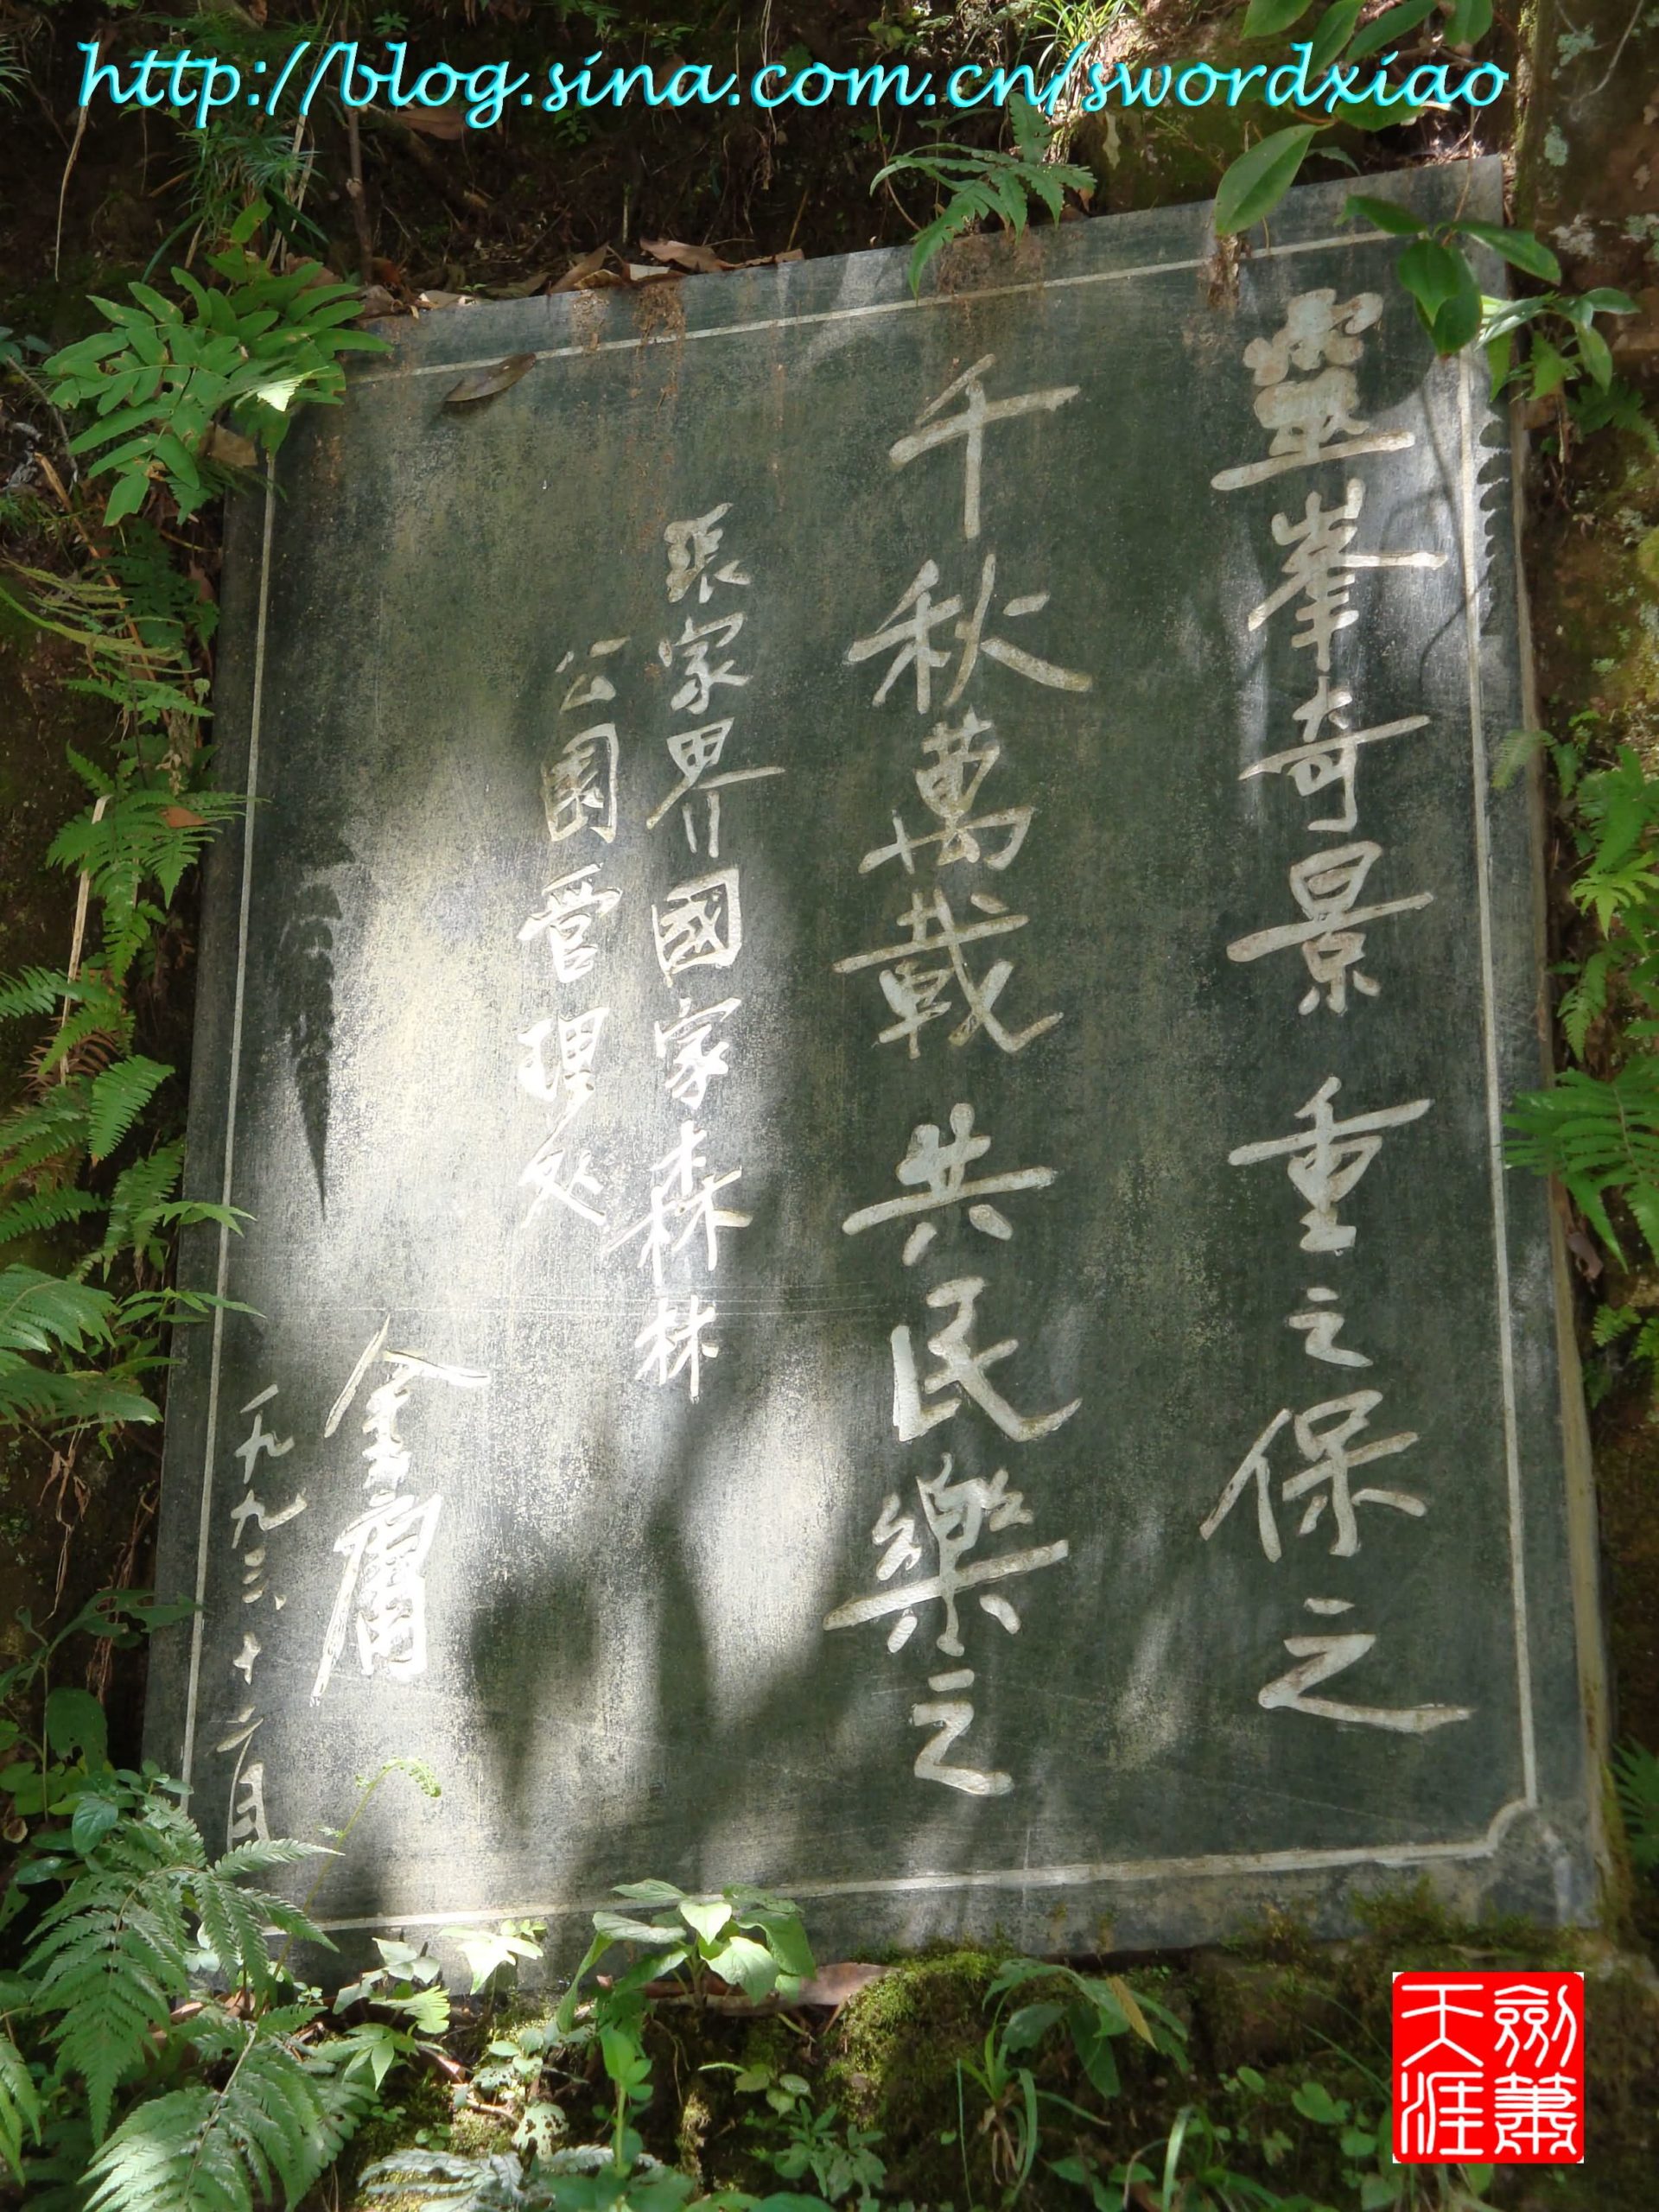 http://blog.sina.com.cn/swordxiao
靈峯奇景 重之保之
千秋萬載 共民樂之
張家界國家森林
公園管理处
金庸
一九九三、十二月
劍簫
天涯